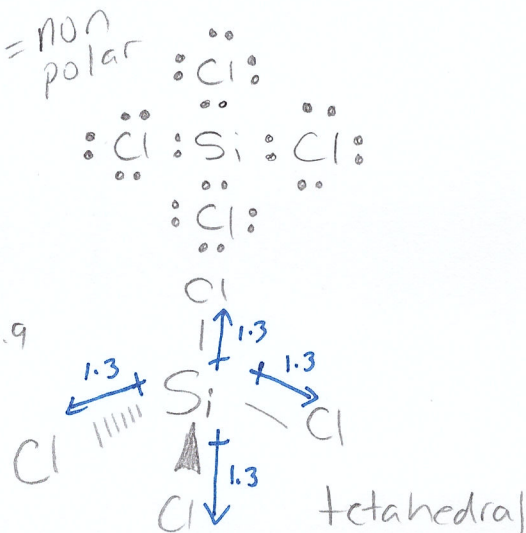 = non
polar
Cl
Cl Si Cl
Cl
Cl
.9
1.3
1.3 1.3
Si
Cl Cl
1.3
Cl
tetahedral